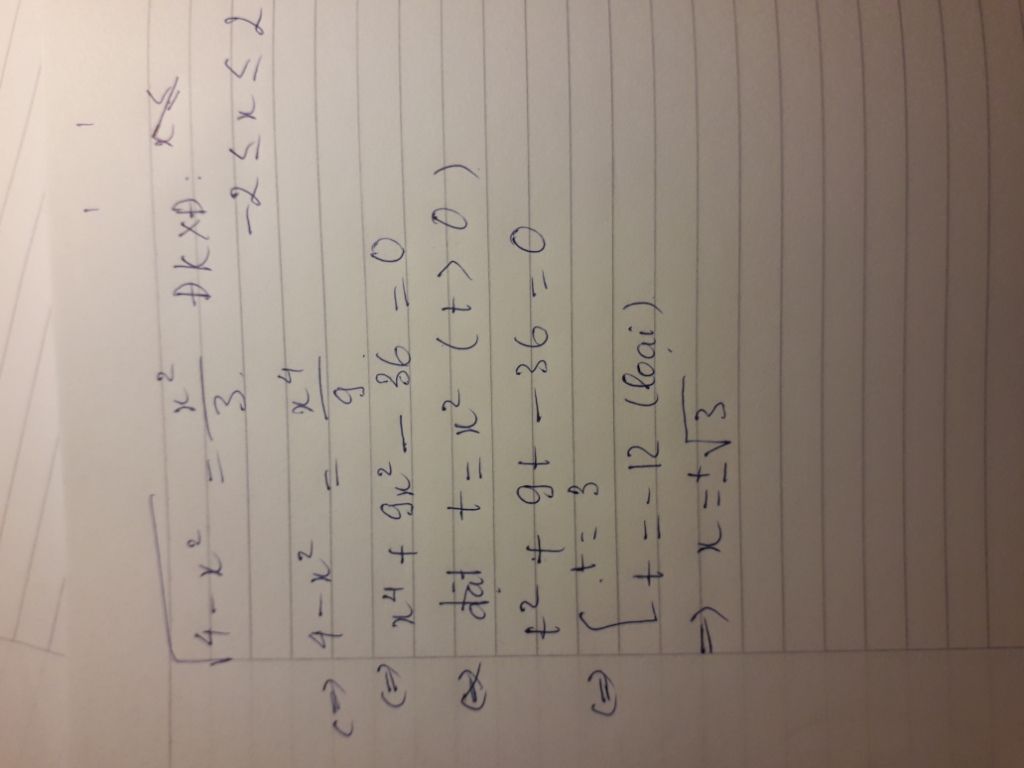 √(4 - x²) = x²/3 ĐKXĐ: x ≤
-2 ≤ x ≤ 2
(=) 4 - x² = x⁴/9
(=) x⁴ + 9x² - 36 = 0
(=) đặt t = x² (t > 0)
t² + 9t - 36 = 0
(=) [ t = 3
t = -12 (loại)
=> x = ±√3